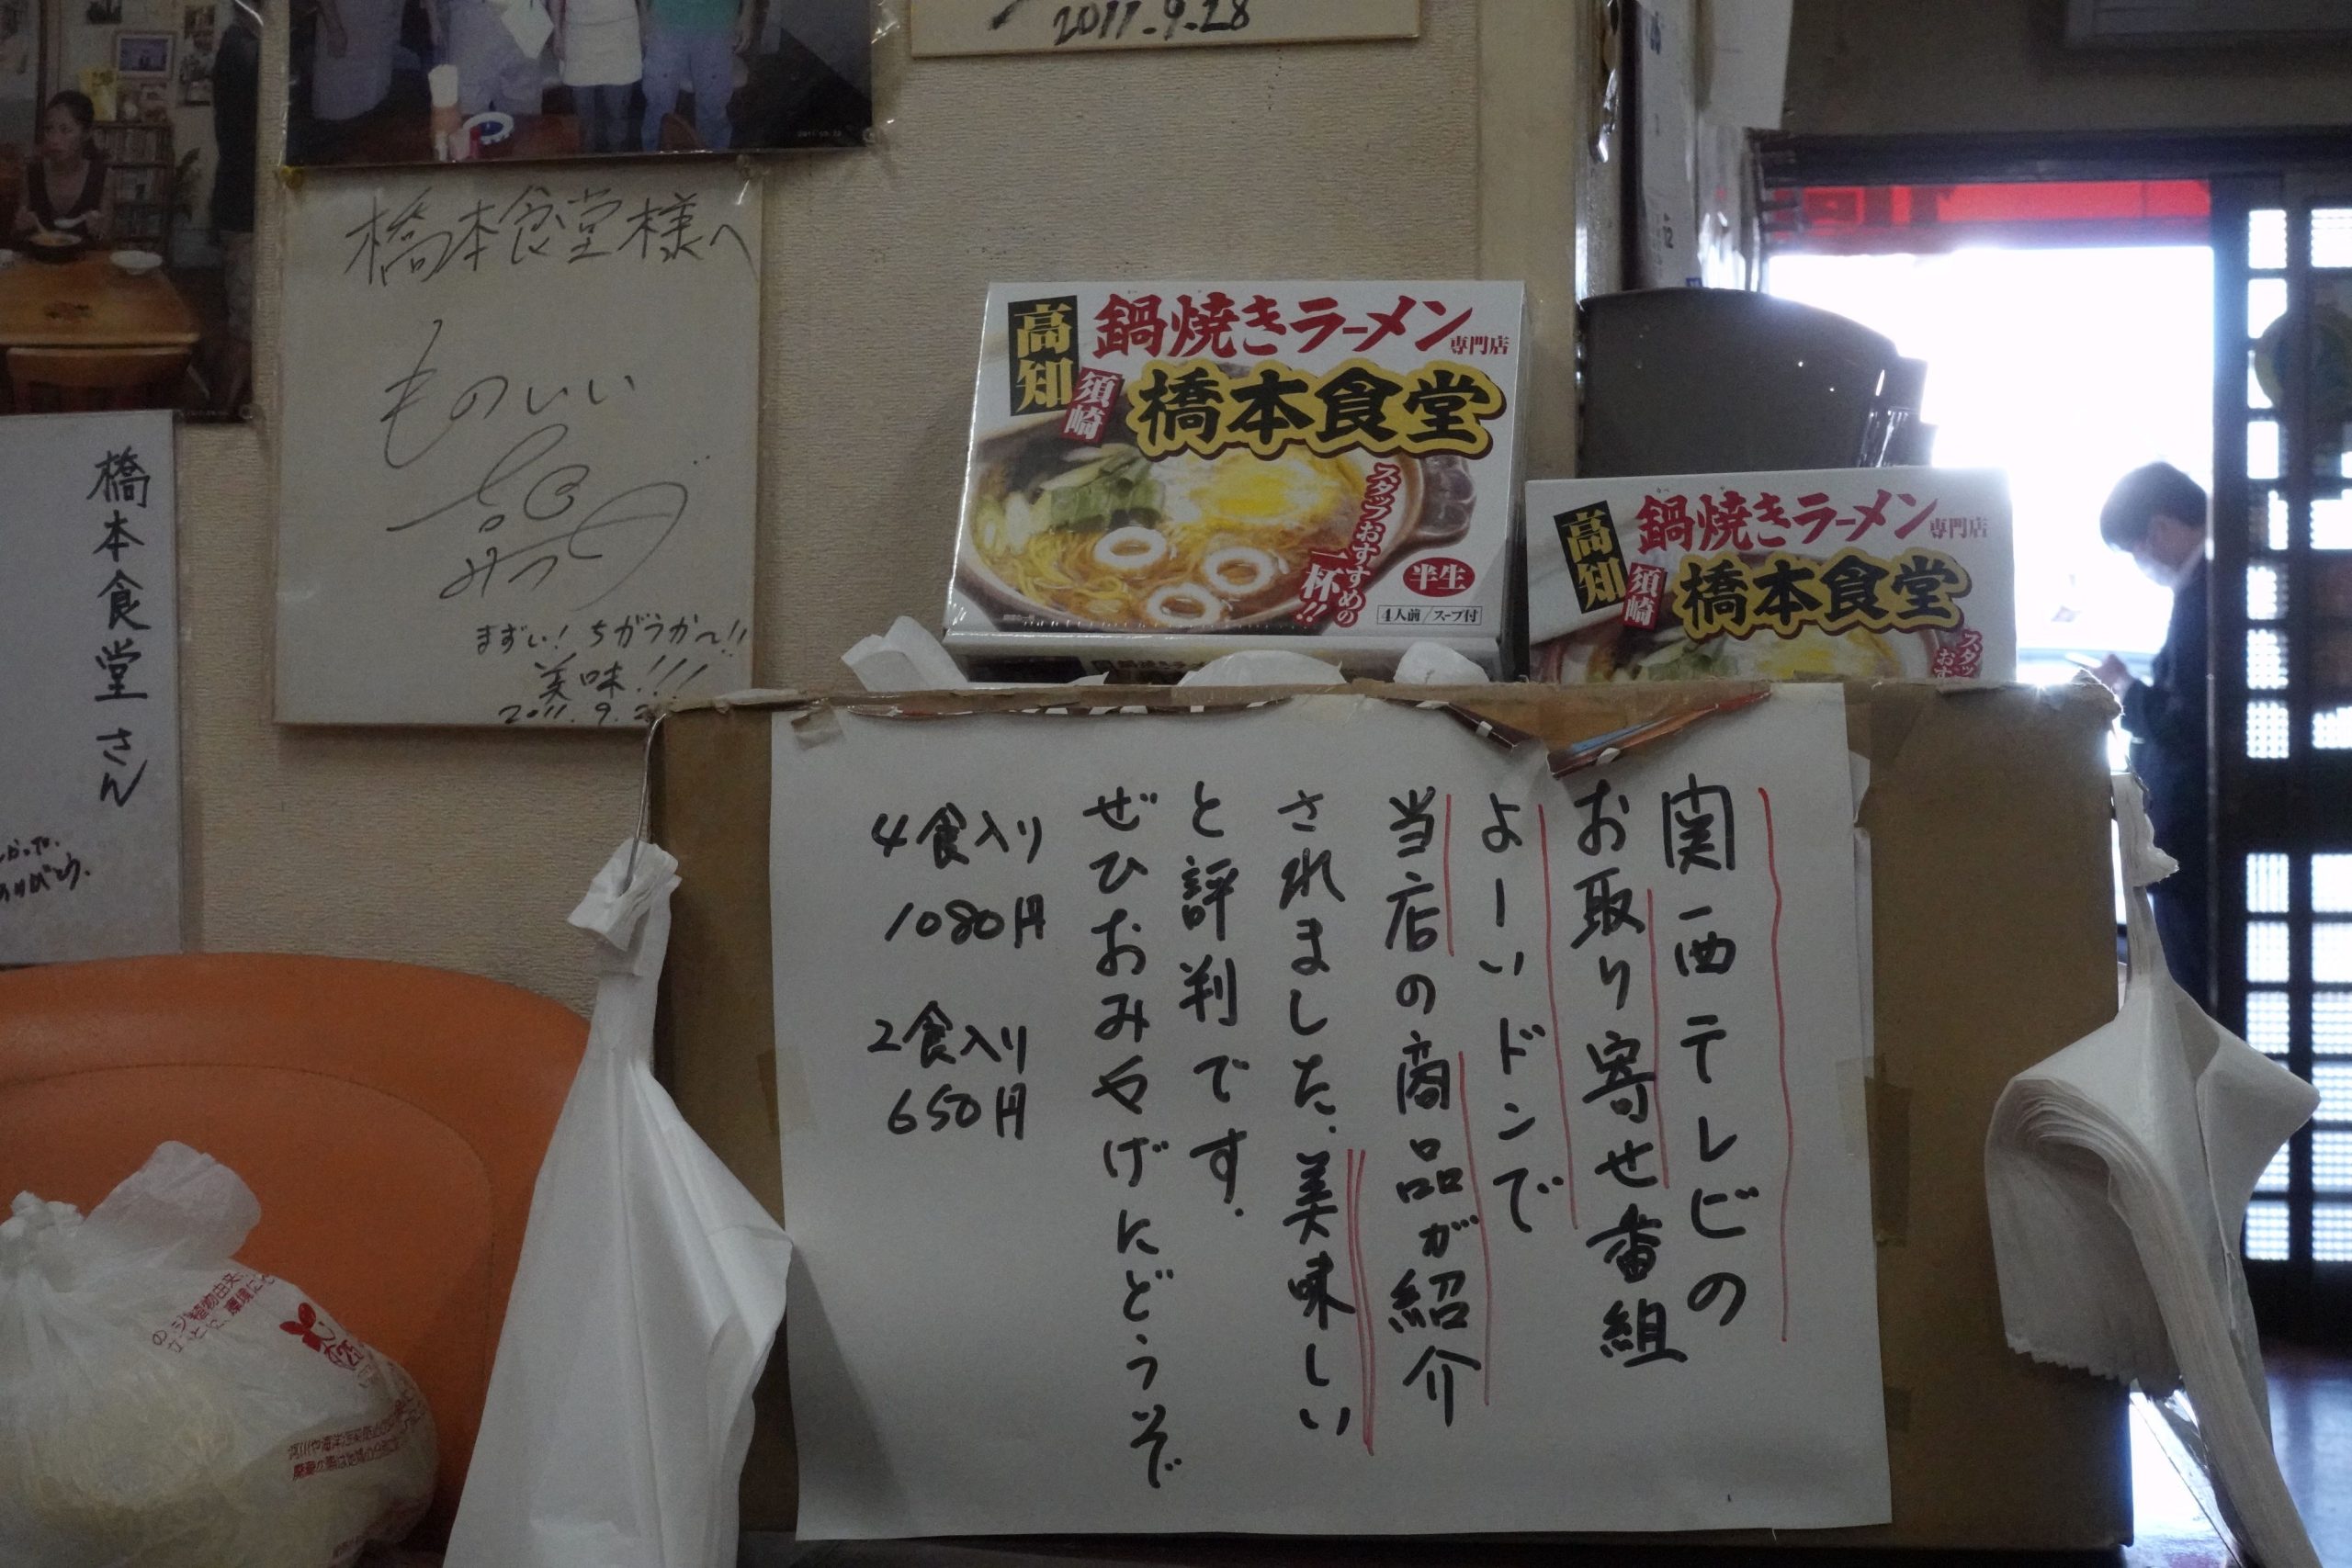 2011.9.28
橋本食堂様へ
ものいい
みつ
まずい!ちがうか〜!!
美味!!!
2011.9.2
橋本食堂さん
高知
須崎
鍋焼きラーメン専門店
橋本食堂
スタッフおすすめの
一杯!!
半生
4人前/スープ付
高知
須崎
鍋焼きラーメン専門店
橋本食堂
関西テレビの
お取り寄せ番組
よーいドンで
当店の商品が紹介
されました.美味しい
と評判です.
ぜひおみやげにどうぞ
4食入り
1080円
2食入り
650円